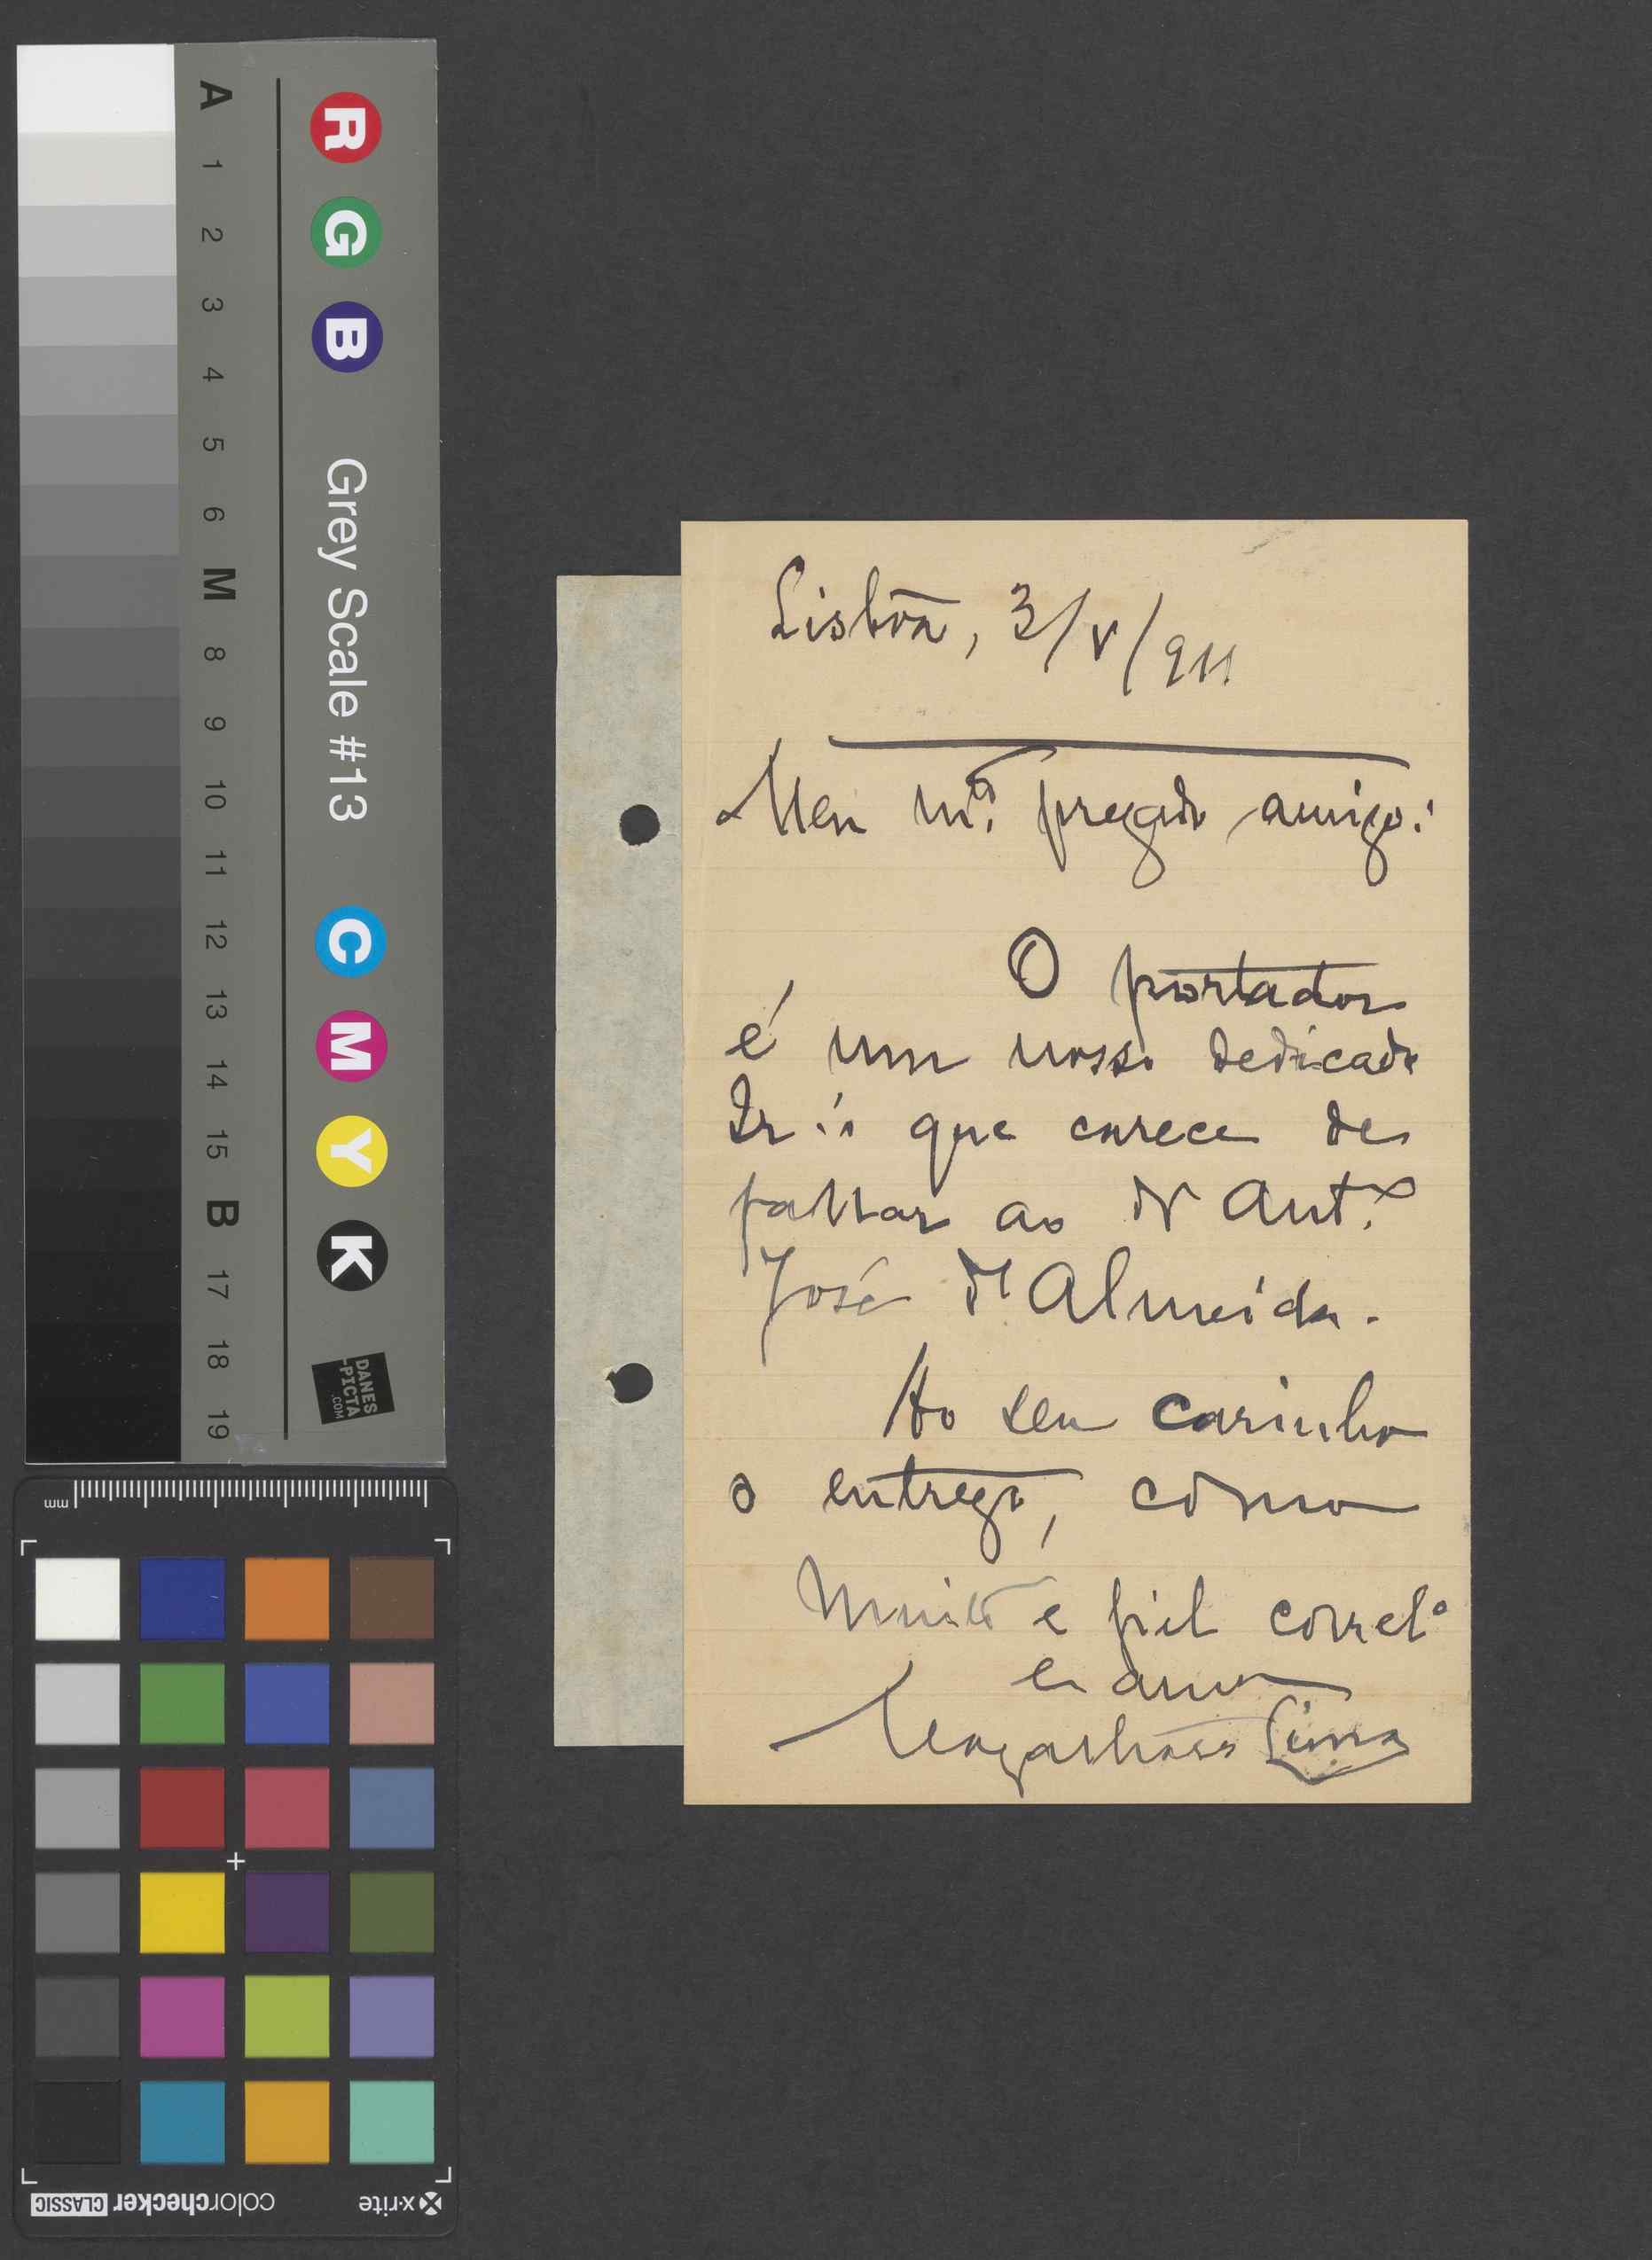 A 1 2 3 4 5 6 M 8 9 10 11 12 13 14 15 B 17 18 19
R G B Grey Scale #13 C M Y K
DANES
-PICTA
.COM
mm
x-rite colorchecker CLASSIC
Lisbôa, 3/V/911
Meu m.to prezado amigo:
O portador
é um nosso dedicado
Ir∴ que carece de
fallar ao Dr Ant.o
José d'Almeida.
Ao seu carinho
o entrego, como
Muito e fiel correl.o
e am
Magalhães Lima